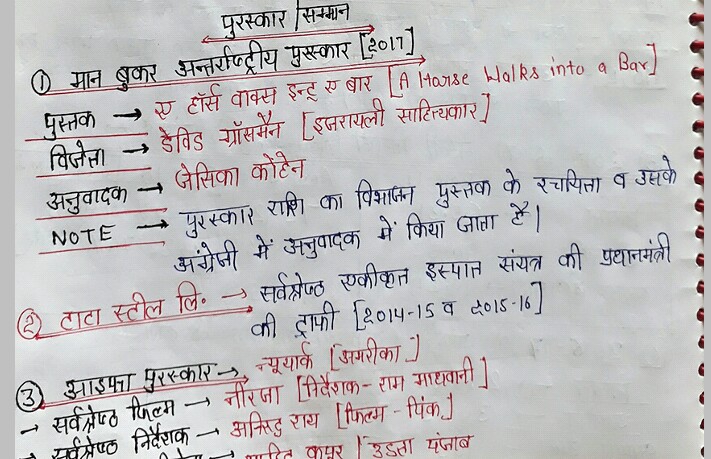 पुरस्कार / सम्मान
① मान बुकर अन्तर्राष्ट्रीय पुरस्कार [2017]
पुस्तक → ए हॉर्स वाक्स इन्टू ए बार [A Horse Walks into a Bar]
विजेता → डेविड ग्रॉसमैन [इजरायली साहित्यकार]
अनुवादक → जेसिका कोहेन
NOTE → पुरस्कार राशि का विभाजन पुस्तक के रचयिता व उसके
अंग्रेजी में अनुवादक में किया जाता है।
② टाटा स्टील लि० → सर्वश्रेष्ठ एकीकृत इस्पात संयंत्र की प्रधानमंत्री
की ट्राफी [2014-15 व 2015-16]
③ आइफा पुरस्कार → न्यूयार्क [अमरीका]
→ सर्वश्रेष्ठ फिल्म → नीरजा [निर्देशक - राम माधवानी]
→ सर्वश्रेष्ठ निर्देशक → अनिरुद्ध राय [फिल्म - पिंक]
कपूर / उड़ता पंजाब